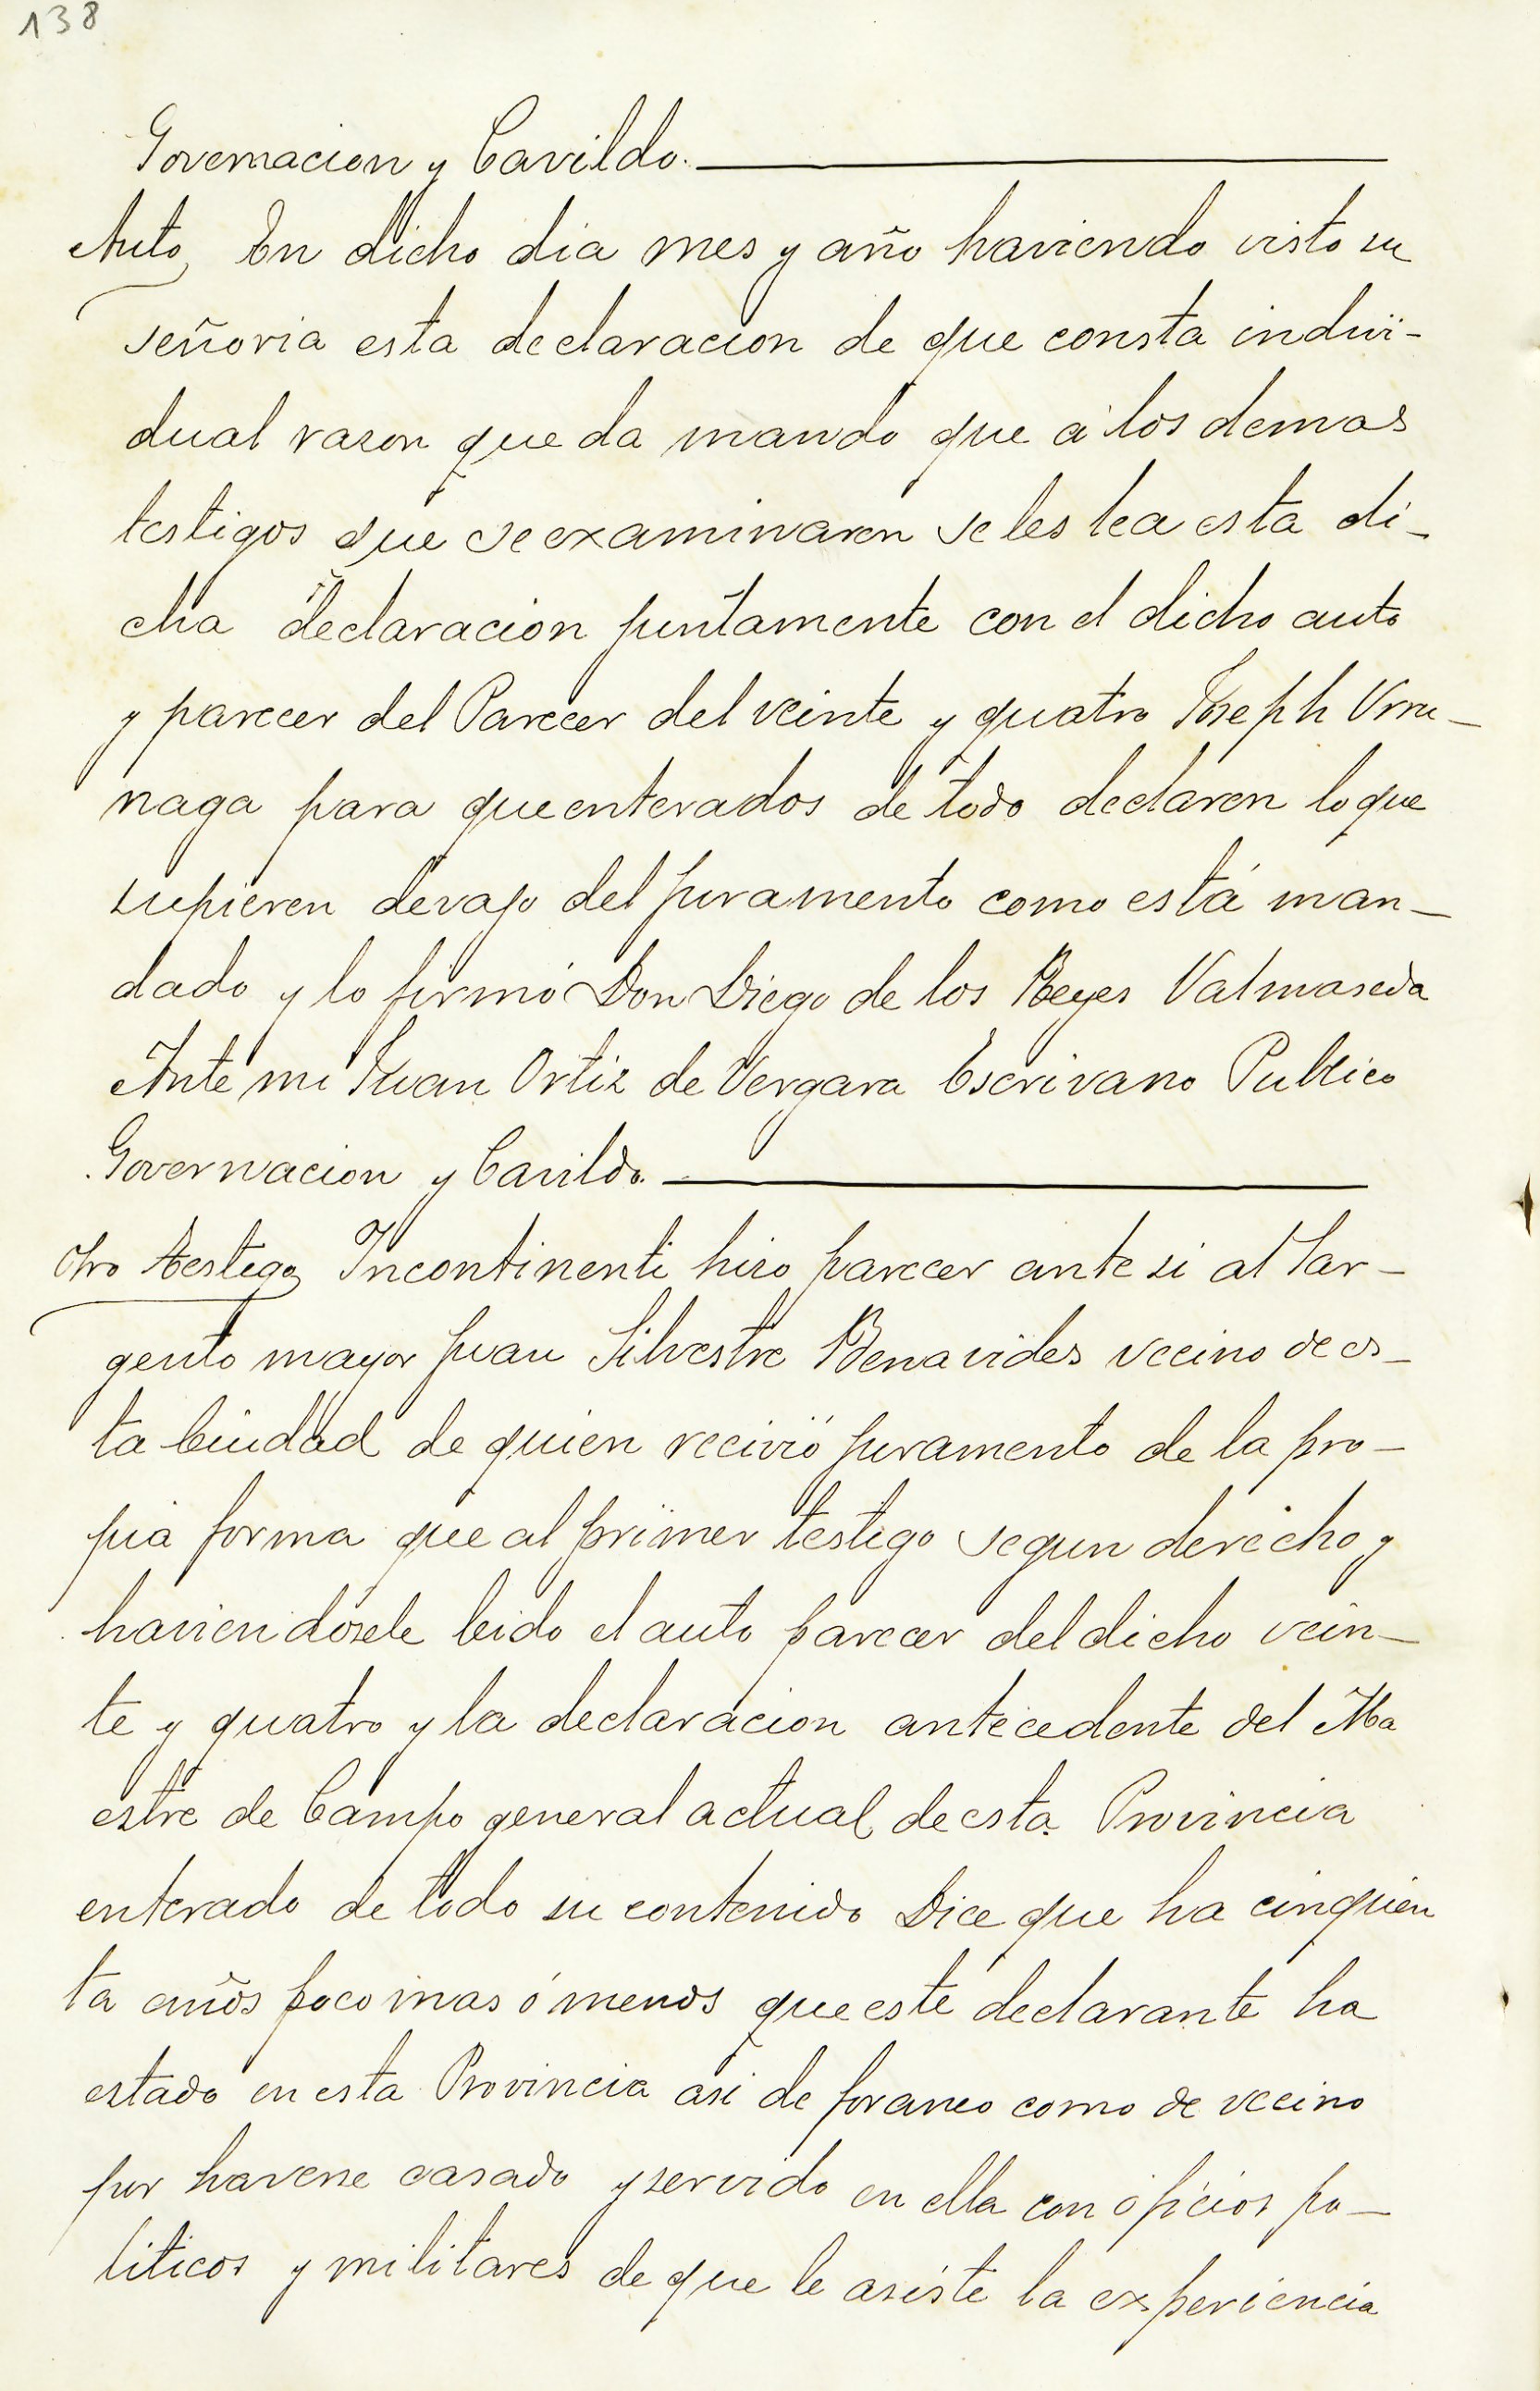 138
Governacion y Cavildo.
Auto En dicho dia mes y año haviendo visto su
señoria esta declaracion de que consta indivi-
dual rason que da mando que á los demas
testigos que se examinaren se les lea esta di-
cha declaracion juntamente con el dicho auto
y parecer del Parecer del veinte y quatro Joseph Urru-
naga para que enterados de todo declaren lo que
supieren devajo del juramento como está man-
dado y lo firmó Don Diego de los Reyes Valmaseda
Ante mi Juan Ortiz de Vergara Escrivano Publico
Governacion y Cavildo.
Otro testigo Incontinenti hiso parecer ante si al Sar-
gento mayor Juan Silvestre Benavides vecino de es-
ta Ciudad de quien recivió juramento de la pro-
pia forma que al primer testigo segun derecho y
haviendósele leido el auto parecer del dicho vein-
te y quatro y la declaracion antecedente del Ma
estre de Campo general actual de esta Provincia
enterado de todo su contenido Dice que ha cinquen
ta años poco mas ó menos que este declarante ha
estado en esta Provincia asi de foraneo como de vecino
por haverse casado y servido en ella con oficios po-
liticos y militares de que le asiste la experiencia